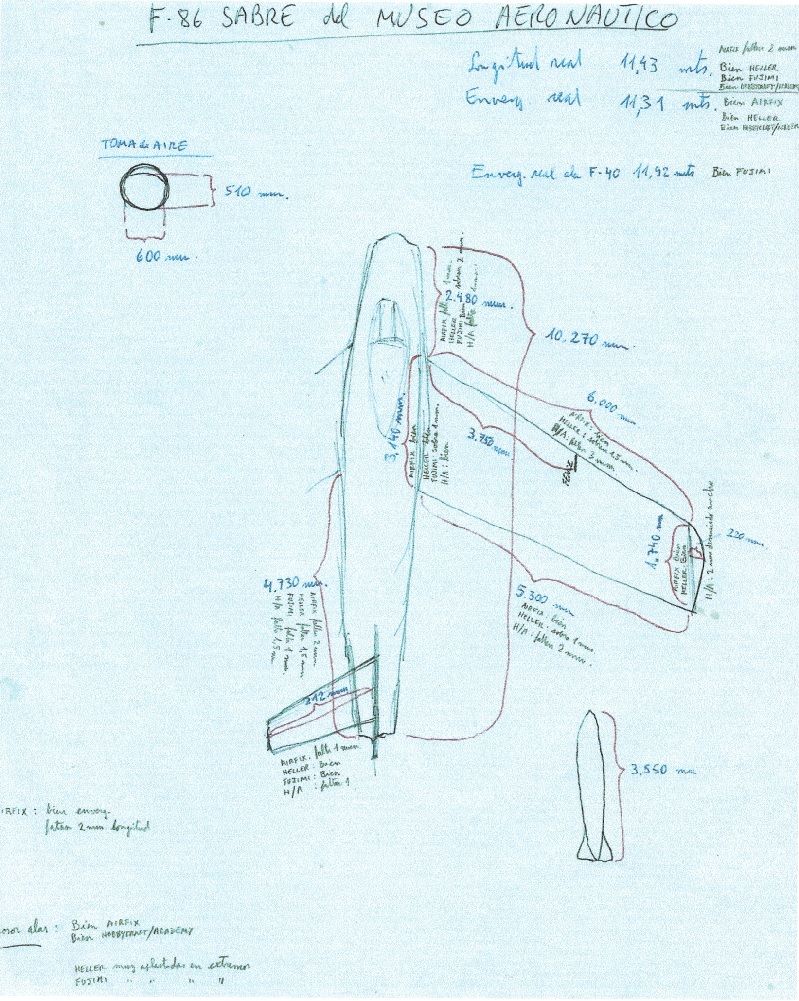 F-86 SABRE del MUSEO AERONAUTICO
Longitud real 11,43 mts.
AIRFIX faltan 2 mm
Bien HELLER
Bien FUJIMI
Bien HOBBYCRAFT/ACADEMY
Enverg. real 11,31 mts.
Bien AIRFIX
Bien HELLER
Bien HOBBYCRAFT/ACADEM
Enverg. real ala F-40 11,92 mts Bien FUJIMI
TOMA de AIRE
510 mm.
600 mm.
2.480 mm.
AIRFIX falta 1 mm.
HELLER sobran 2 mm.
FUJIMI bien
H/A falta 1 mm.
10.270 mm.
6.000 mm
AIRFIX: bien
HELLER: sobra 1,5 mm.
H/A: faltan 3 mm.
3.750 mm
3,140 mm.
AIRFIX bien
HELLER bien
FUJIMI sobra 1 mm.
H/A: bien
1.740 mm
AIRFIX Bien
HELLER Bien
220 mm.
4.730 mm.
AIRFIX faltan 2 mm
HELLER faltan 1,5 mm
FUJIMI falta 1 mm.
H/A falta 1,5 mm
5.300 mm
AIRFIX bien
HELLER: sobra 1 mm.
H/A: faltan 2 mm.
212 mm
AIRFIX: falta 1 mm
HELLER: Bien
FUJIMI: Bien
H/A : falta 1
3,550 mm
IRFIX : bien enverg.
faltan 2 mm longitud
osor alas : Bien AIRFIX
Bien HOBBYCRAFT/ACADEMY
HELLER muy aplastadas en extremos
FUJIMI " " " "